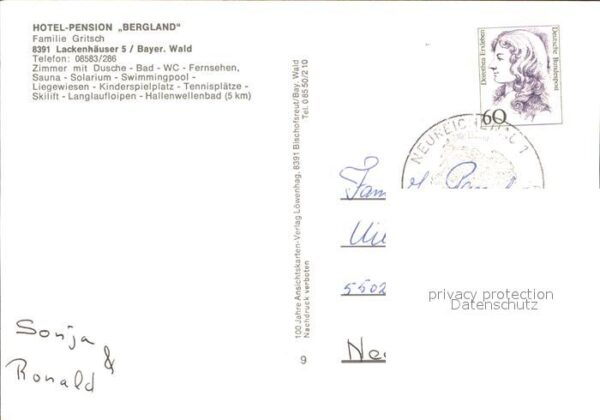 HOTEL-PENSION „BERGLAND"
Familie Gritsch
8391 Lackenhäuser 5 / Bayer. Wald
Telefon: 08583/286
Zimmer mit Dusche - Bad - WC - Fernsehen,
Sauna - Solarium - Swimmingpool -
Liegewiesen - Kinderspielplatz - Tennisplätze -
Skilift - Langlaufloipen - Hallenwellenbad (5 km)
Sonja
&
Ronald
100 Jahre Ansichtskarten-Verlag Löwenhag, 8391 Bischofsreut/Bay. Wald
Nachdruck verboten
Tel. 0 85 50/2 10
9
Dorothea Erxleben
Deutsche Bundespost
60
Fam
5502
Ne
privacy protection
Datenschutz